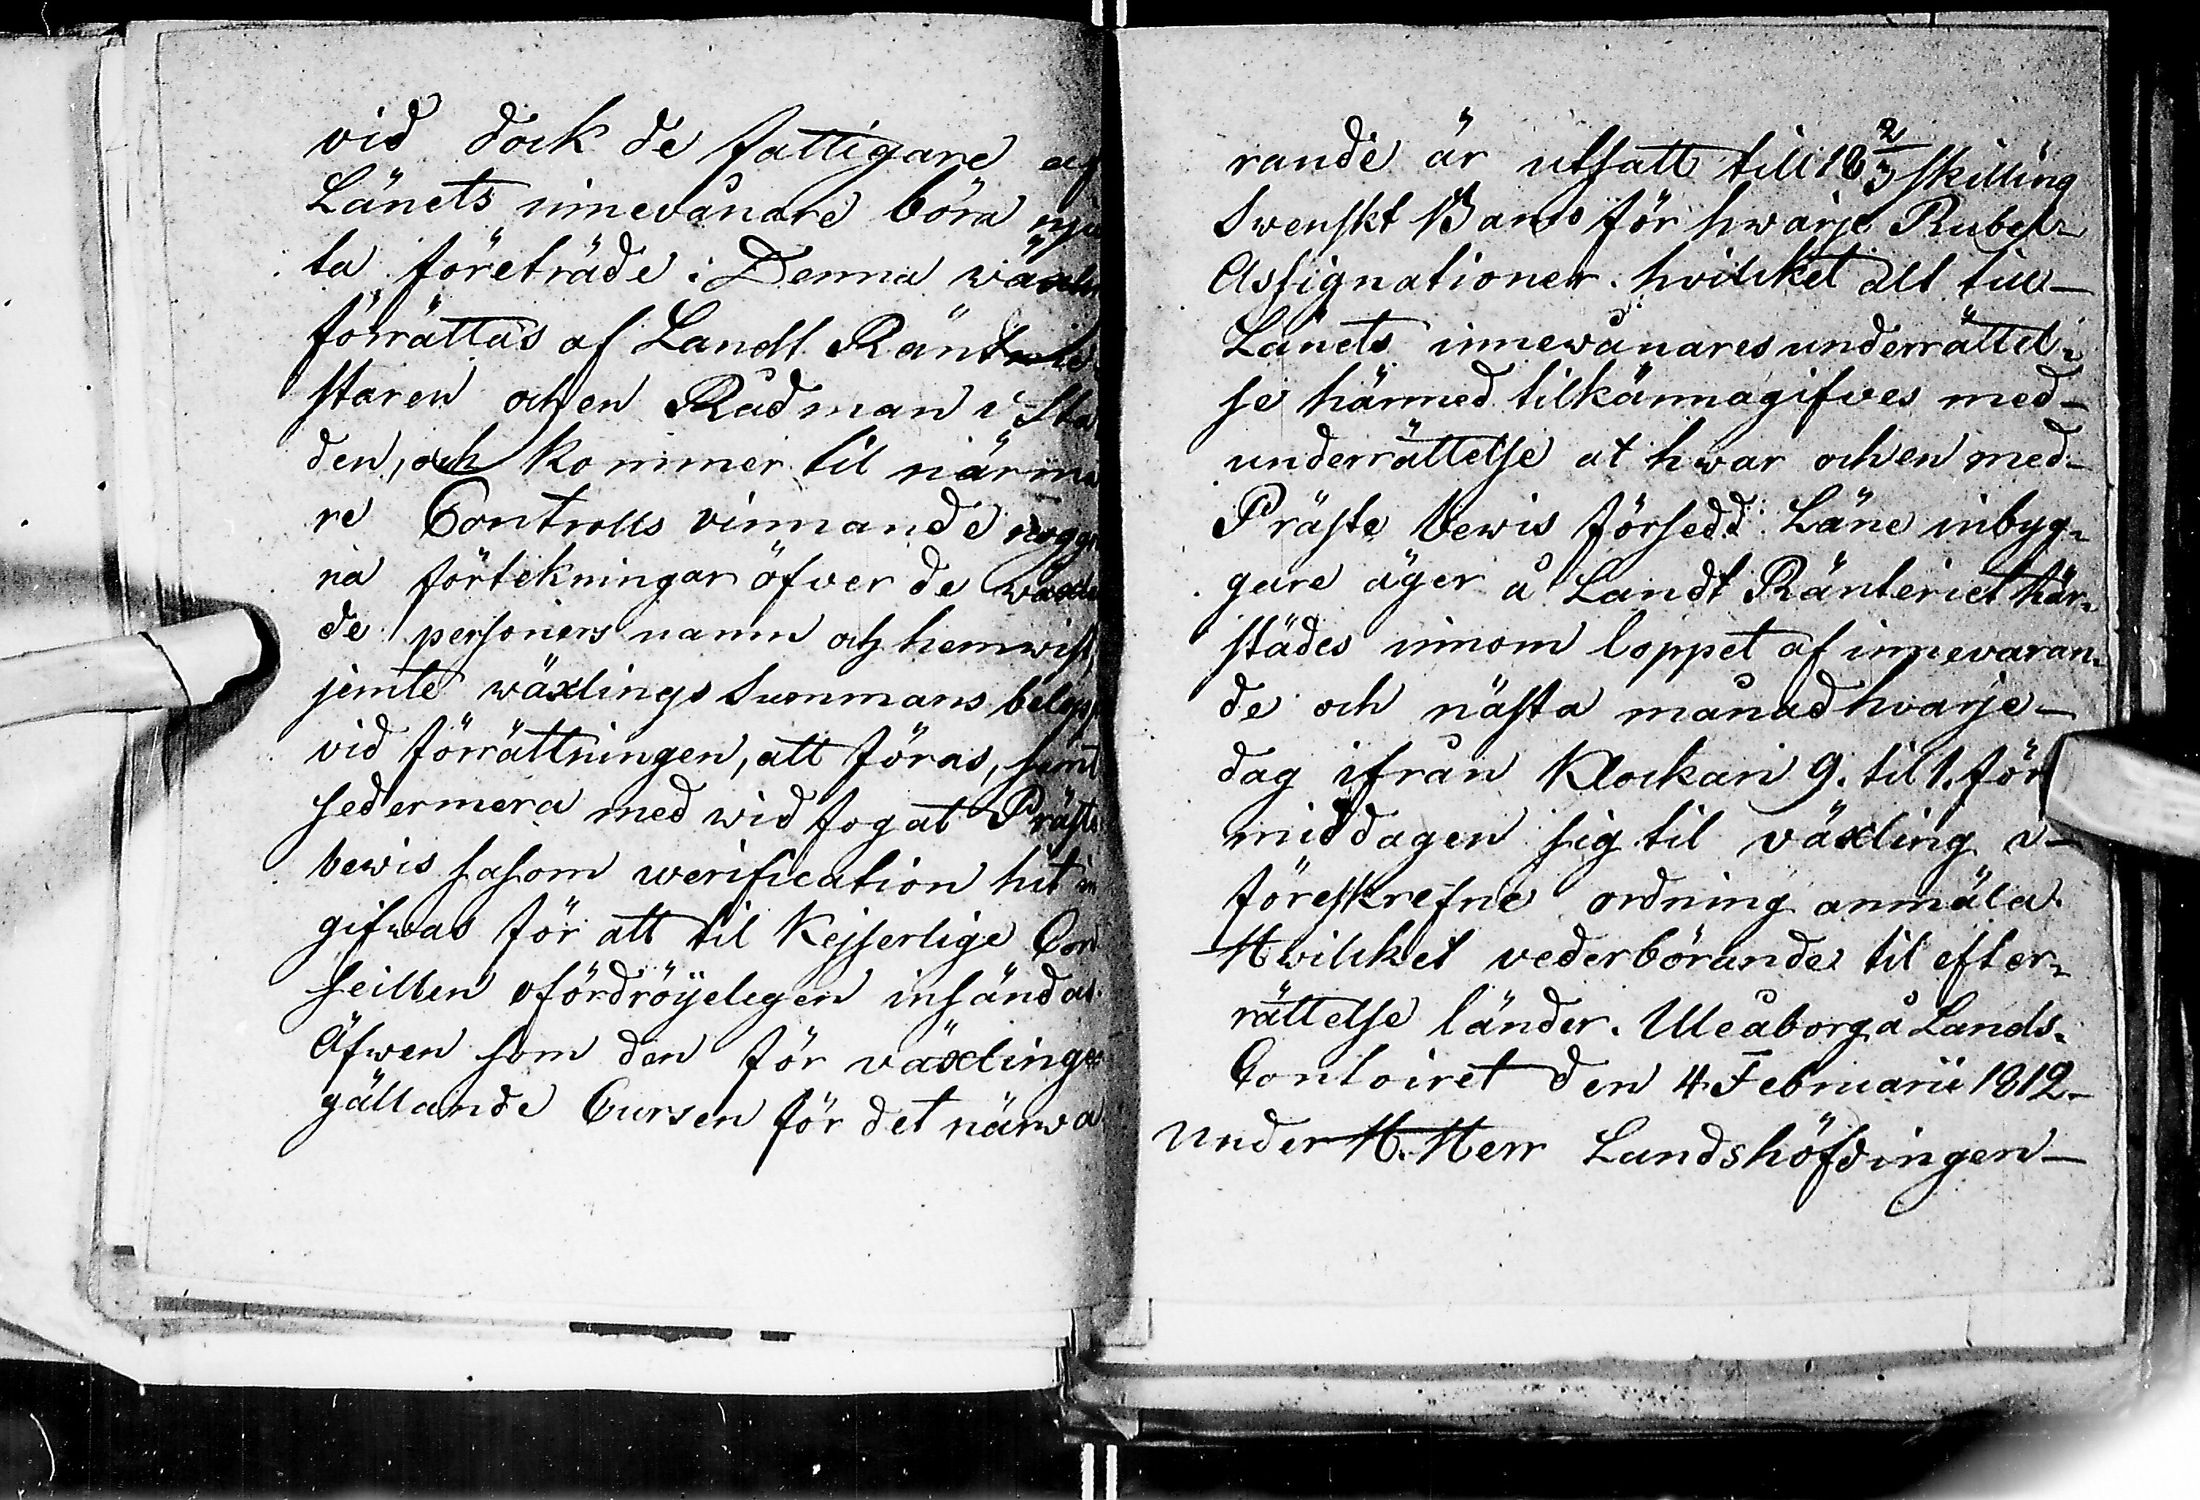 vid dock de fattigare af
Länets innevånare böra nju
ta företräde. Denna
förrättas af Landt Räntmä
staren och en Rådman i Sta
den, och kommer til närma
re Controlls vinnande nogg
na förtekningar öfver de
de personers namn och hemwist,
jemte wäxlings Summans belopp
vid förrättningen, att föras,
sedermera med widfogat Präste
bewis sasom werification hit in
gifwas för att til Kejserlige Con
seillen ofördröijeligen insändas.
Äfwen som den för växlingen
gällande Cursen för det närwa
rande är utsatt till 18 2/3 skilling
Swenskt Banco för hwarje Rubel
Assignationer. hvilcket alt till
Länets innewånares underrättel¬
se härmed tilkännagifves med
underrättelse at hwar och en med
Präste bewis försedd Läne inbyg¬
gare äger å Landt Ränteriet här¬
städes innom loppet af innevaran¬
de och nästa månad hvarje
dag ifrån Klockan 9. til 1. för
middagen sig til växling i
föreskrefne ordning anmäla.
Hwilcket vederbörande til efter¬
rättelse länder. Uleåborg å Lands
Contoiret den 4 Februarii 1812
Under H. Herr Landshöfdingen